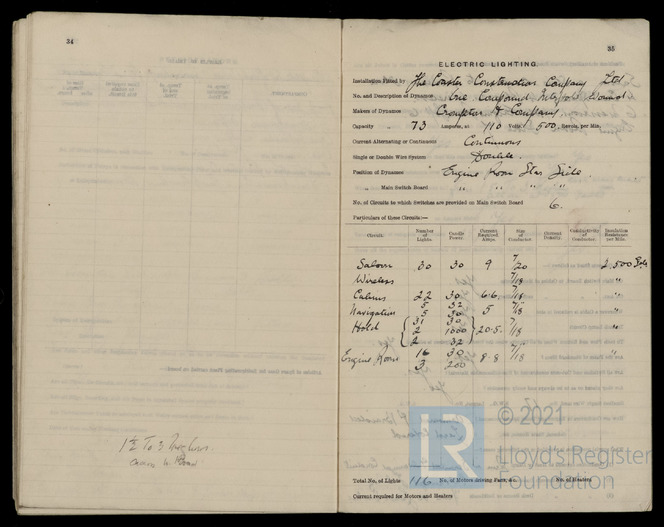 34
1½ To 3
35
ELECTRIC LIGHTING.
Installation fitted by The Coaster Construction Company Ltd
No. and Description of Dynamos One Compound Interpole Wound
Makers of Dynamos Crompton & Company
Capacity 73 Amperes, at 110 Volts, 500 Revols. per Min.
Current Alternating or Continuous Continuous
Single or Double Wire System Double.
Position of Dynamos Engine Room Star Side.
" Main Switch Board " " " "
No. of Circuits to which Switches are provided on Main Switch Board 6.
Particulars of these Circuits:—
Circuit. Number of Lights. Candle Power. Current Required Amps. Size of Conductor. Current Density. Conductivity of Conductor. Insulation Resistance per Mile.
Saloon 30 30 9 7/20 2,500
Wireless 7/18 "
Cabins 22 30 6.6. 7/18 "
Navigation 5 32 5 7/18 "
5 30
Hold 31 30 20.5. 7/18 "
2 1000
2 32
Engine Room 16 30 8.8 7/18 "
3 200
LR © 2021
Lloyd's Register
Foundation
Total No. of Lights 116 No. of Motors driving Fans, &c. No. of Heaters
Current required for Motors and Heaters